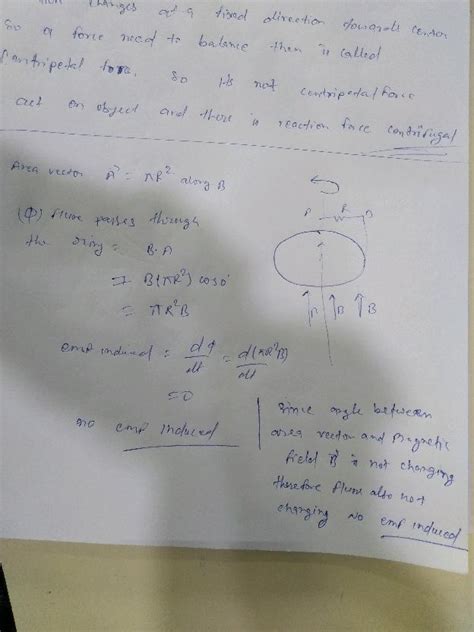 changes at a fixed direction towards center
So a force need to balance then is called
Centripetal force. So its not centripetal force
act on object and there is reaction force centrifugal
Area vector A⃗ = πR² along B
(Φ) flux passes through
the ring = B.A
= B(πR²) cos0°
= πR²B
emf induced = dφ/dt = d(πR²B)/dt
= 0
no emf induced
R
B B
Since angle between
area vector and magnetic
field B⃗ is not changing
therefore flux also not
changing no emf induced